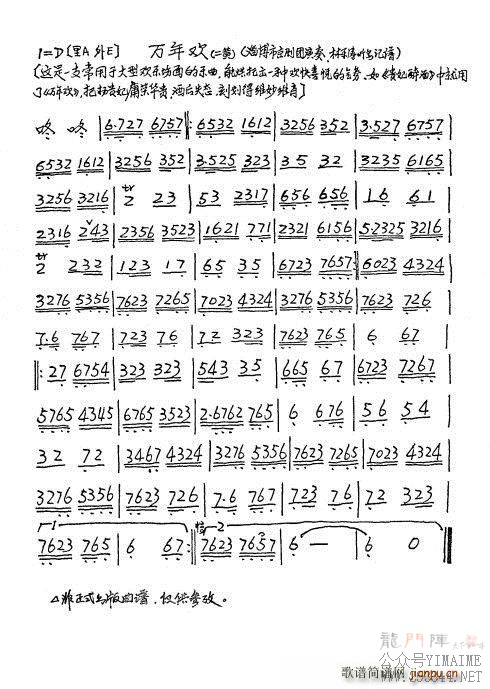 1=D〔里A 外E〕 万年欢(二黄)(淄博市京剧团演奏、林 记谱)
〔这是一支常用于大型欢乐场面的乐曲,能烘托出一种欢快喜悦的气氛。如《贵妃醉酒》中就用
了《万年欢》,把杨贵妃 荣华贵,酒后失态,刻划得维妙维肖〕
咚 咚 | 6·727 6757 |: 6532 1612 | 3256 352 | 3·527 6757 |
6532 1612 | 3256 352 | 3·525 323 | 35 32 | 3235 6165 |
3256 3216 | 2 23 | 53 2317 | 656 656 | 16 61 |
2316 243 | 2356 3523 | 1621 771 | 2321 6156 | 5·2325 3216 |
2 232 | 123 17 | 65 35 | 6723 7657 :| 6023 4324 |
3276 5356 | 7623 7265 | 7023 4324 | 3276 5356 | 7623 726 |
7·6 767 | 723 76 | 72 323 | 7623 765 | 6 67 |
|: 27 6754 | 323 323 | 543 35 | 665 67 | 6723 7267 |
5765 4345 | 6765 3523 | 2·6762 765 | 6 676 | 56 54 |
32 72 | 3467 4324 | 3276 5356 | 7623 7265 | 7023 4324 |
3276 5356 | 7623 726 | 7·6 767 | 723 76 | 72 323 |
1 2
7623 765 | 6 67 :| 7623 7657 | 6 — | 6 0 ‖
△非正式出版曲谱,仅供参改。
龍門陣
公众号YIMAIME
歌谱简谱网 jianpu.cn